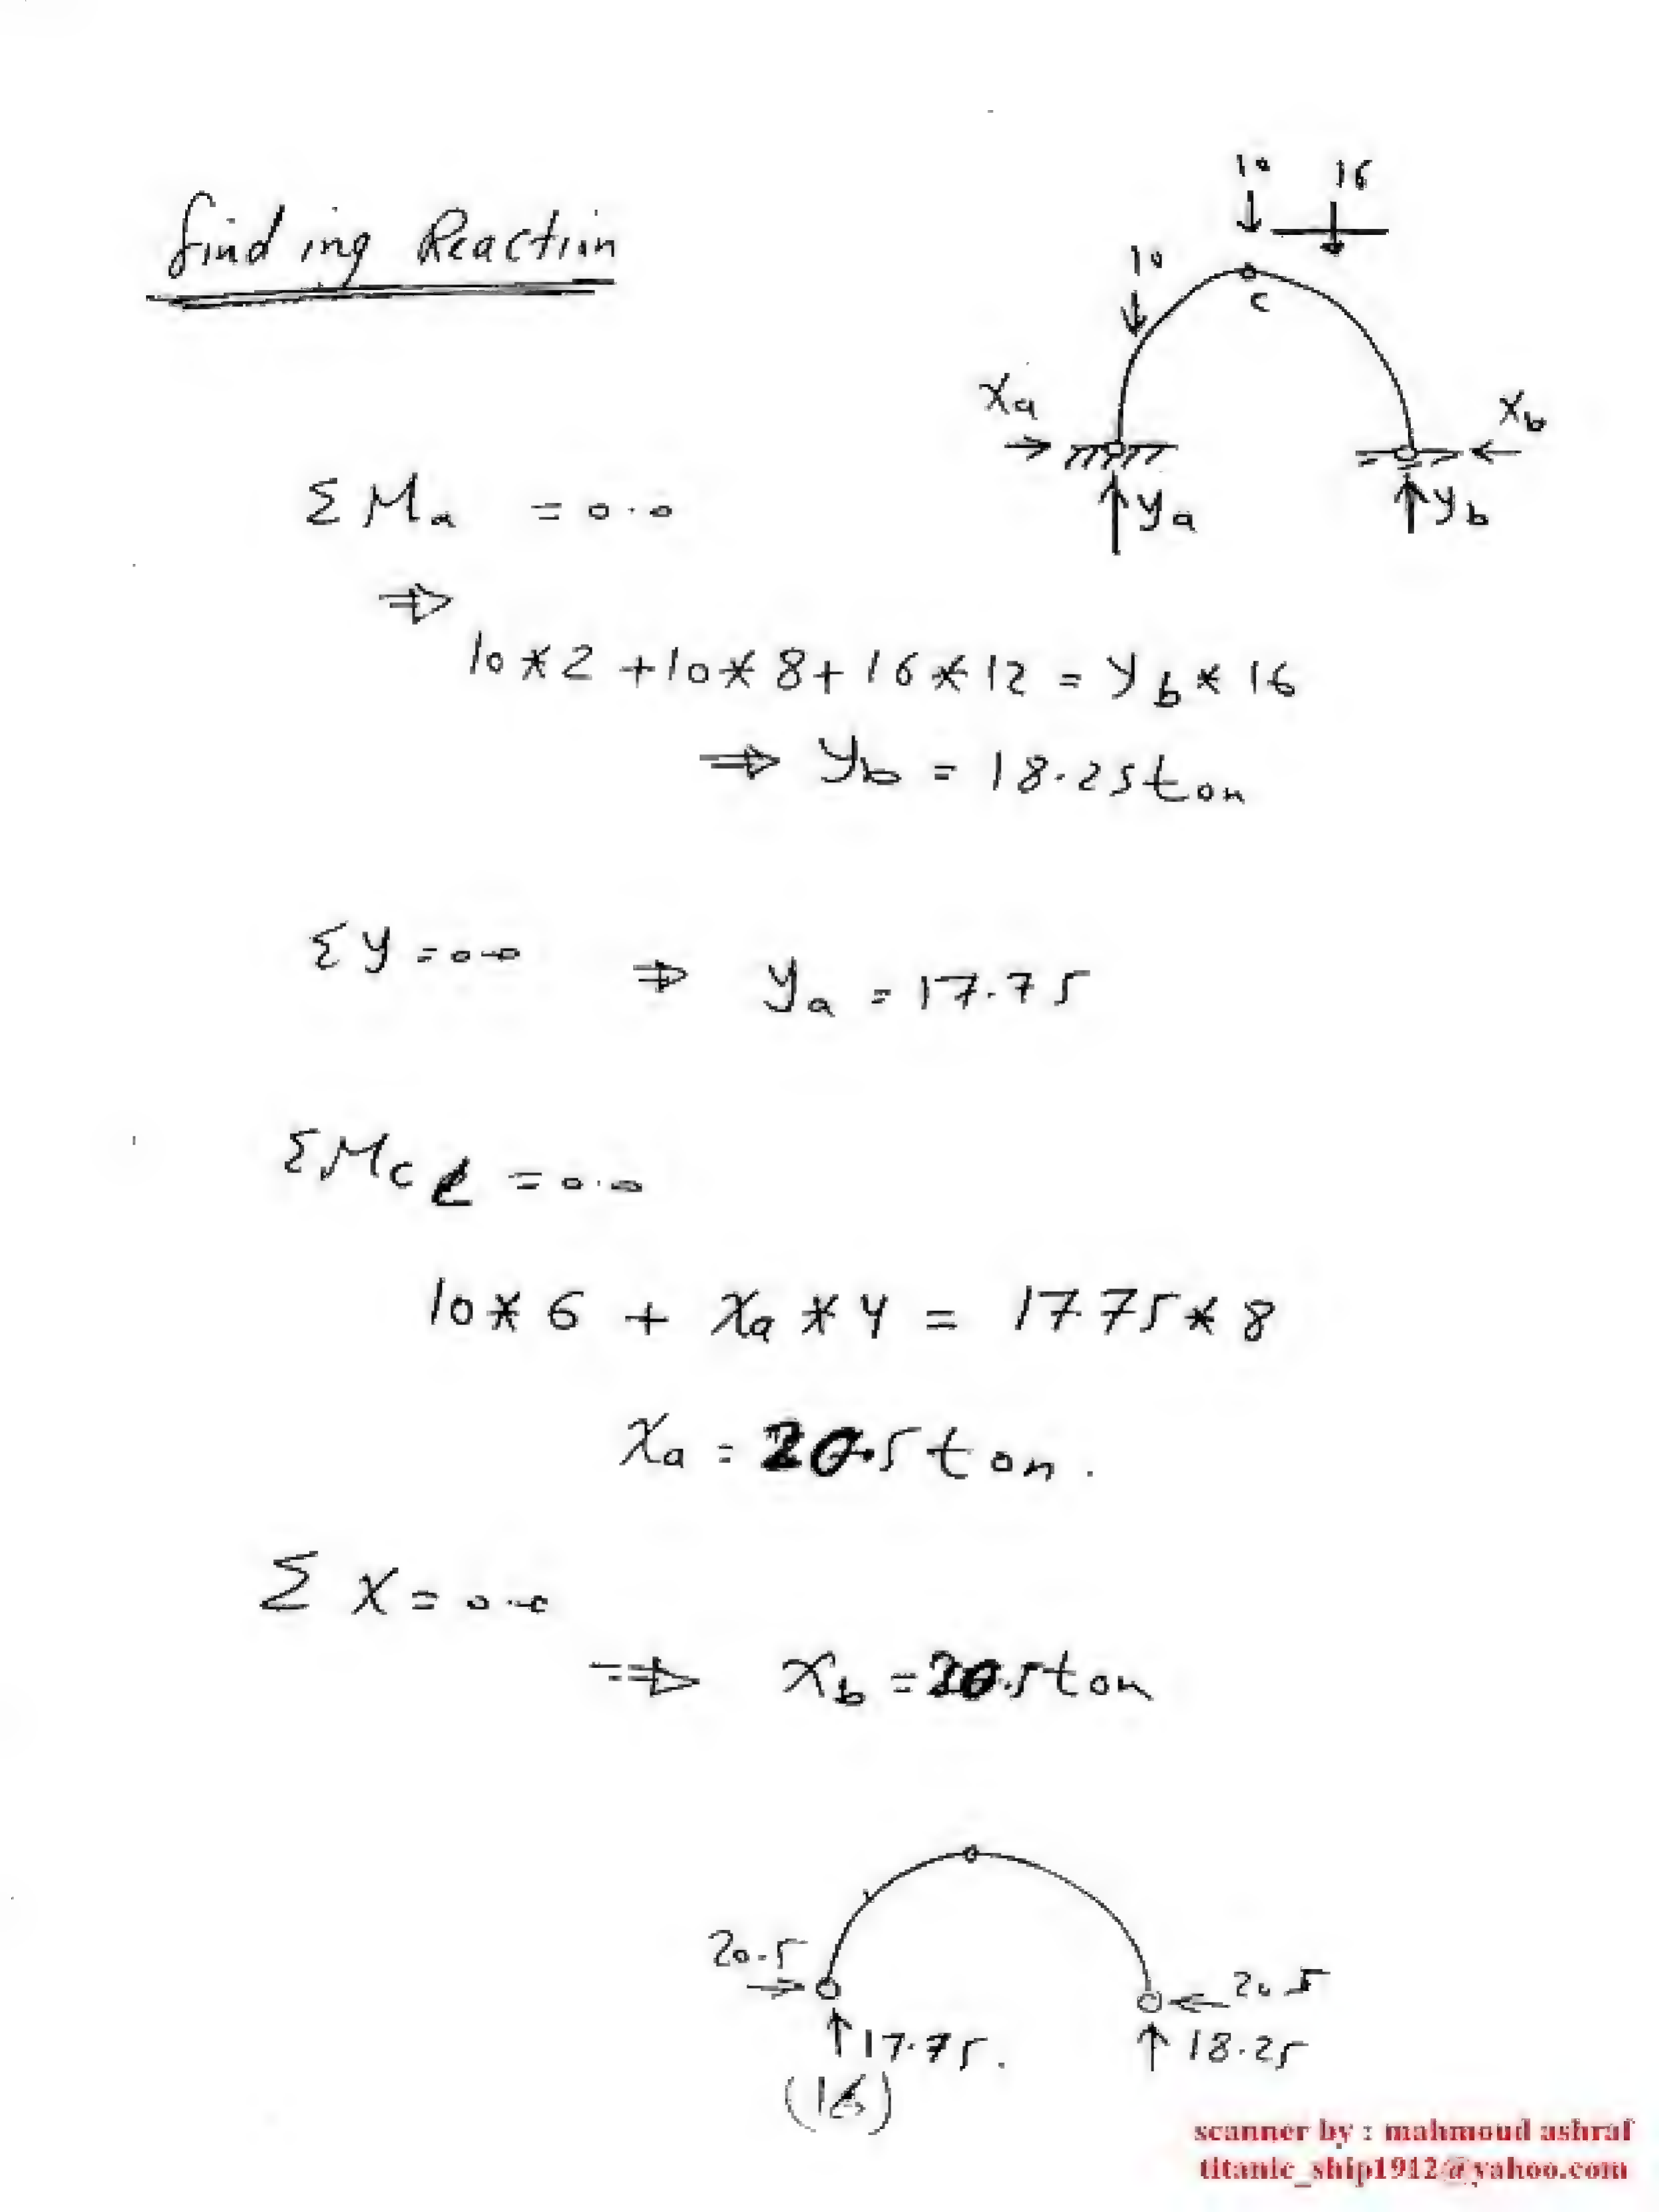 Finding Reaction
10 16
10
C
Xa Xb
ya yb
ΣMa = 0.0
⇒
10*2 + 10*8 + 16*12 = yb * 16
⇒ yb = 18.25 ton
Σy = 0.0 ⇒ ya = 17.75
ΣMcl = 0.0
10*6 + Xa * 4 = 17.75*8
Xa = 20.5 ton.
ΣX = 0.0
⇒ Xb = 20.5 ton
20.5 20.5
17.75. 18.25
(16)
scanner by : mahmoud ashraf
titanic_ship1912@yahoo.com